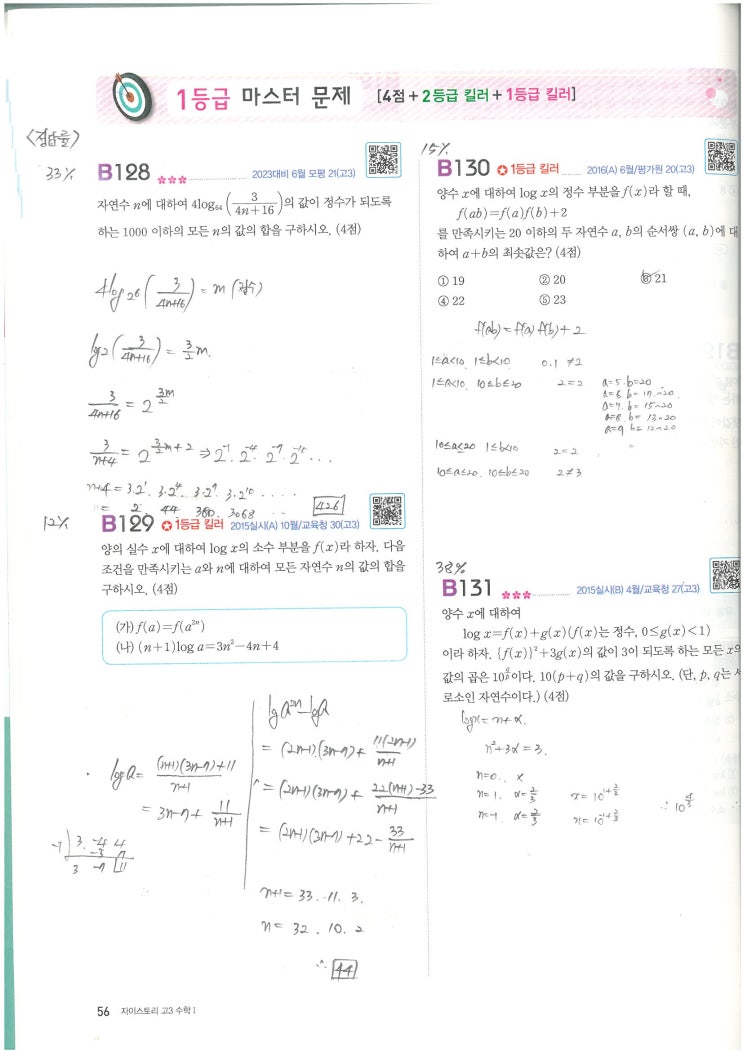 1등급 마스터 문제 [4점+2등급 킬러+1등급 킬러]
<정답률>
33%
B128 2023대비 6월 모평 21(고3)
자연수 n에 대하여 4log₆₄(3/(4n+16))의 값이 정수가 되도록
하는 1000 이하의 모든 n의 값의 합을 구하시오. (4점)
4log₂6(3/(4n+16)) = m (정수)
log₂(3/(4n+16)) = 3/2 m.
3/(4n+16) = 2^(3m/2)
3/(n+4) = 2^(3/2 m+2) ⇒ 2⁻¹. 2⁻⁴. 2⁻⁷. 2⁻¹⁰ ...
n+4 = 3·2¹. 3·2⁴. 3·2⁷. 3·2¹⁰ ....
426
12%
B129 1등급 킬러 2015실시(A) 10월/교육청 30(고3)
양의 실수 x에 대하여 log x의 소수 부분을 f(x)라 하자. 다음
조건을 만족시키는 a와 n에 대하여 모든 자연수 n의 값의 합을
구하시오. (4점)
㈎ f(a)=f(a²ⁿ)
㈏ (n+1)log a=3n²-4n+4
logA = ((n+1)(3n-7)+11)/(n+1)
= 3n-7+ 11/(n+1)
3. -4 4
-3 7
3 -7 11
logA²ⁿ-logA
= (2n-1)(3n-7)+ 11(2n-1)/(n+1)
= (2n-1)(3n-7)+ (22(n+1)-33)/(n+1)
= (2n-1)(3n-7)+22- 33/(n+1)
n+1 = 33. 11. 3.
n = 32. 10. 2
∴ 44
15%
B130 1등급 킬러 2016(A) 6월/평가원 20(고3)
양수 x에 대하여 log x의 정수 부분을 f(x)라 할 때,
f(ab)=f(a)f(b)+2
를 만족시키는 20 이하의 두 자연수 a, b의 순서쌍 (a, b)에 대
하여 a+b의 최솟값은? (4점)
① 19 ② 20 ③ 21
④ 22 ⑤ 23
f(ab) = f(a) f(b) + 2
1≤a<10, 1≤b<10 0.1 ≠2
1≤a<10, 10≤b≤20 2=2 a=5. b=20
a=6. b= 17~20
a=7. b= 15~20
a=8. b= 13~20
a=9 b= 12~20
10≤a≤20 1≤b<10 2=2 "
10≤a≤20. 10≤b≤20 2≠3
38%
B131 2015실시(B) 4월/교육청 27(고3)
양수 x에 대하여
log x=f(x)+g(x)(f(x)는 정수, 0≤g(x)<1)
이라 하자. {f(x)}²+3g(x)의 값이 3이 되도록 하는 모든 x의
값의 곱은 10^(q/p)이다. 10(p+q)의 값을 구하시오. (단, p, q는 서
로소인 자연수이다.) (4점)
logx = n+α.
n²+3α = 3.
n=0.. x
n=1. α=2/3 x = 10^(1+2/3)
n=-1. α=2/3 x = 10^(-1+2/3)
∴ 10^(4/3)
56 자이스토리 고3 수학 I